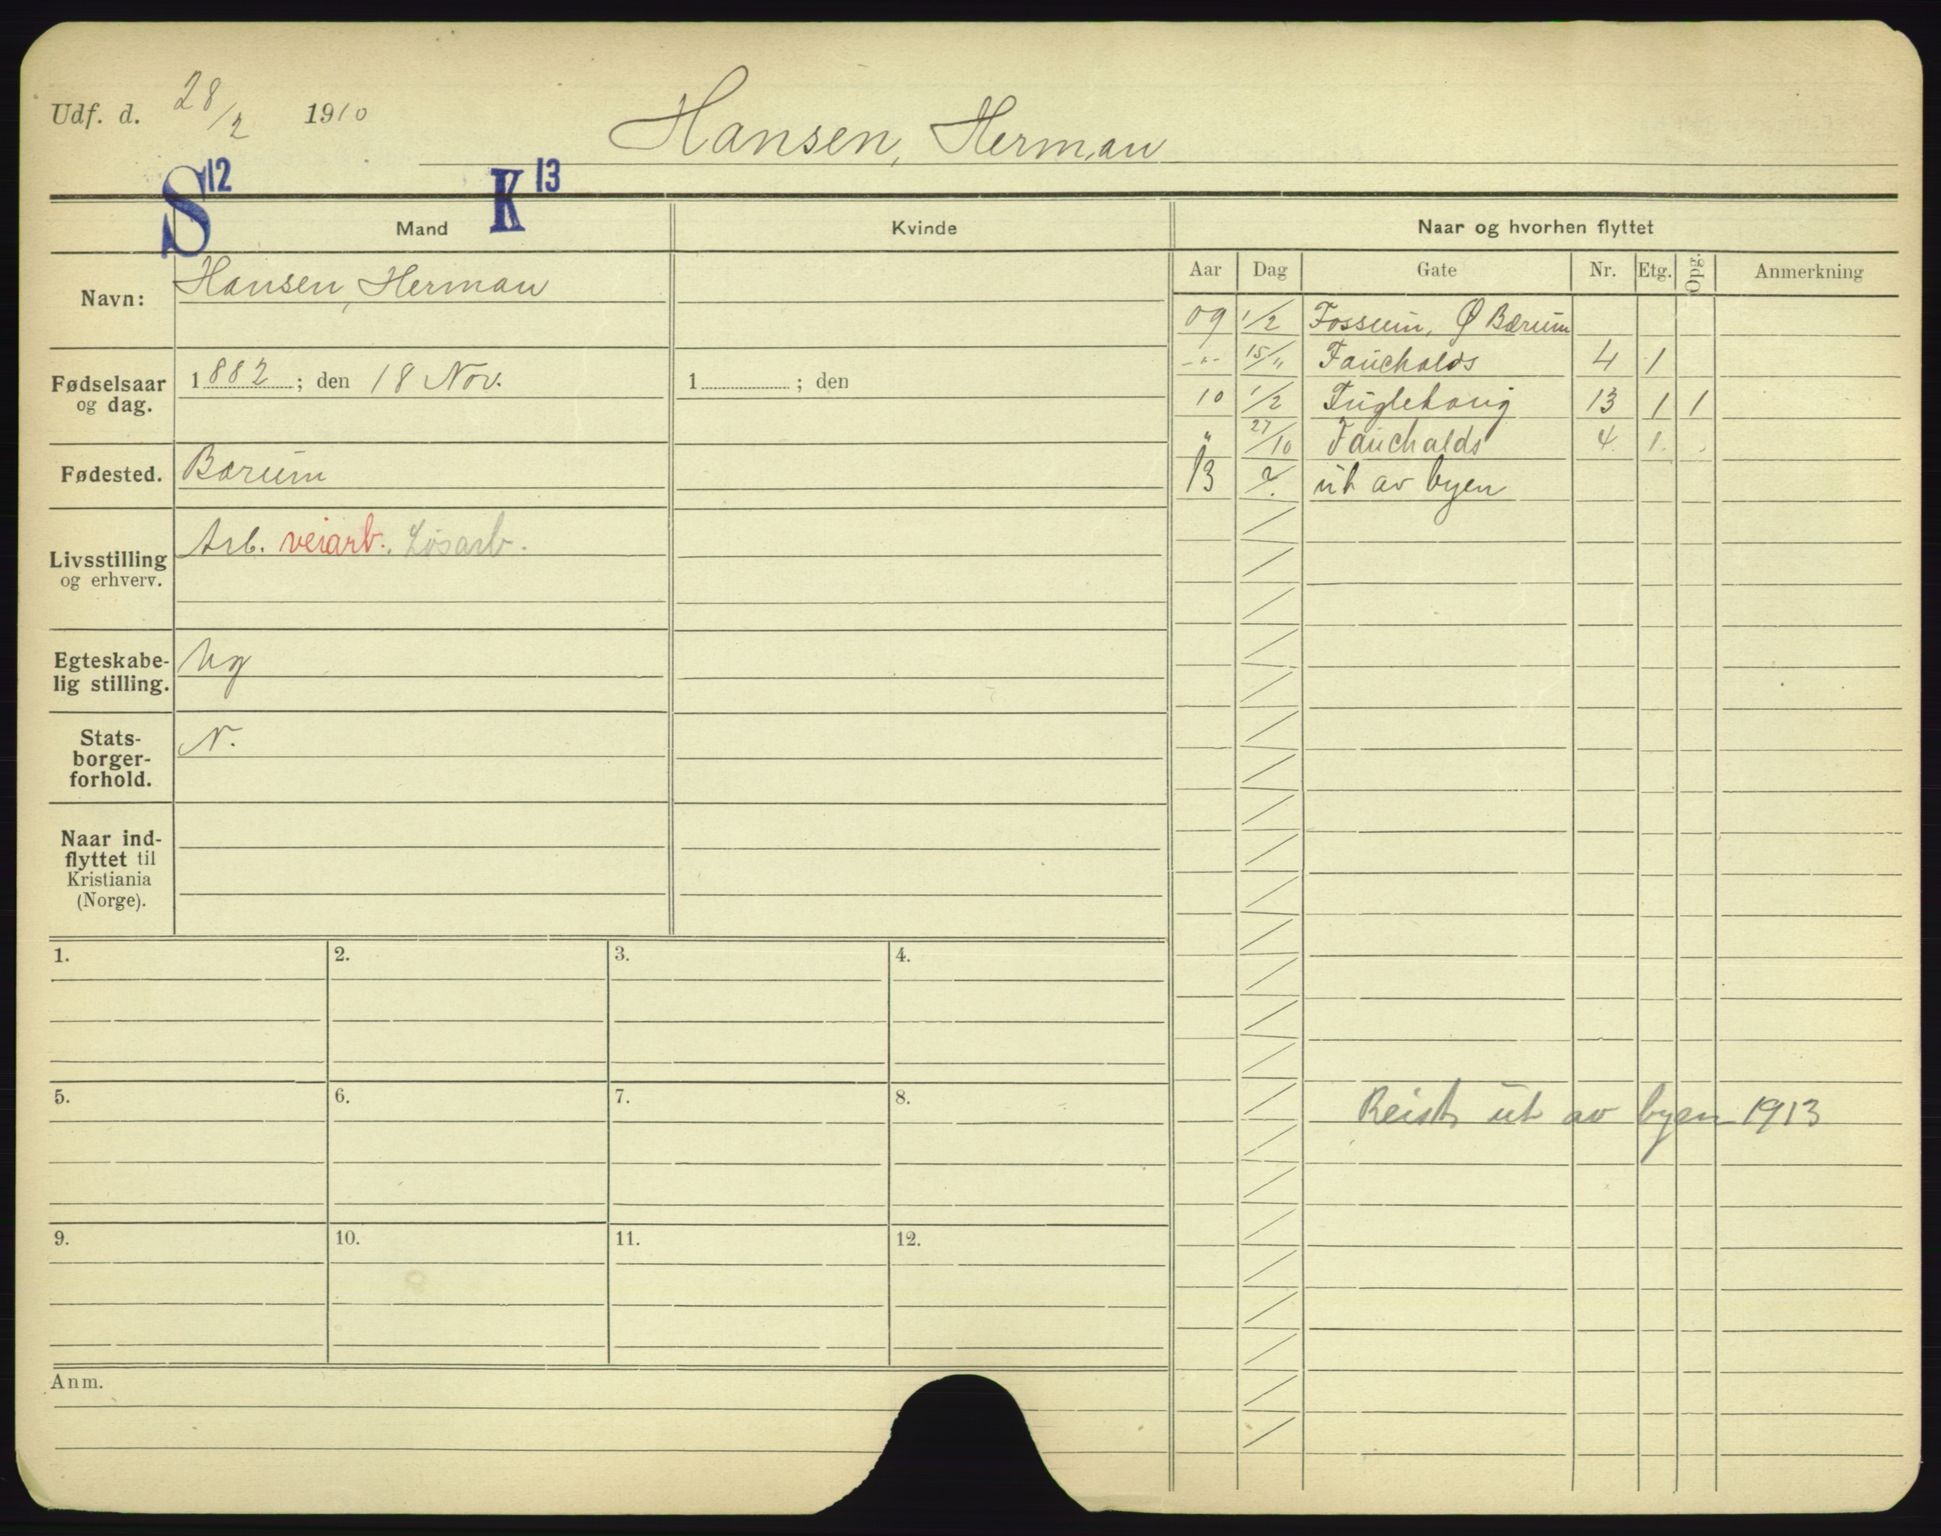 Udf. d. 28/2 1910
Hansen, Herman
S 12 K 13
Mand Kvinde Naar og hvorhen flyttet
Aar Dag Gate Nr. Etg. Opg. Anmerkning
Navn: Hansen, Herman
Fødselsaar og dag. 1882; den 18 Nov. 1 ; den
Fødested. Bærum
Livsstilling og erhverv. Arb. veiarb. Løsarb.
Egteskabe-
lig stilling. Ug
Stats-
borger-
forhold. N.
Naar ind-
flyttet til
Kristiania
(Norge).
09 1/2 Fossum, Ø Bærum
-"- 15/" Faucholds 4 1
10 1/2 Fuglehaug 13 1 1
" 27/10 Fauchalds 4 1.
13 ?. ut av byen
Reist ut av byen 1913
1. 2. 3. 4.
5. 6. 7. 8.
9. 10. 11. 12.
Anm.